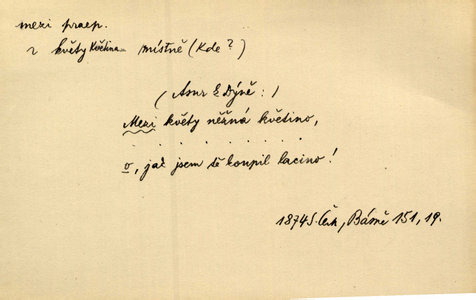 mezi praep.
2 květy Květina místně (Kde?)
(Asnr & Dýně:)
Mezi květy něžná květino,
. . . . . . .
o, jak jsem tě koupil lacino!
1874 S. Čech, Básně 151, 19.